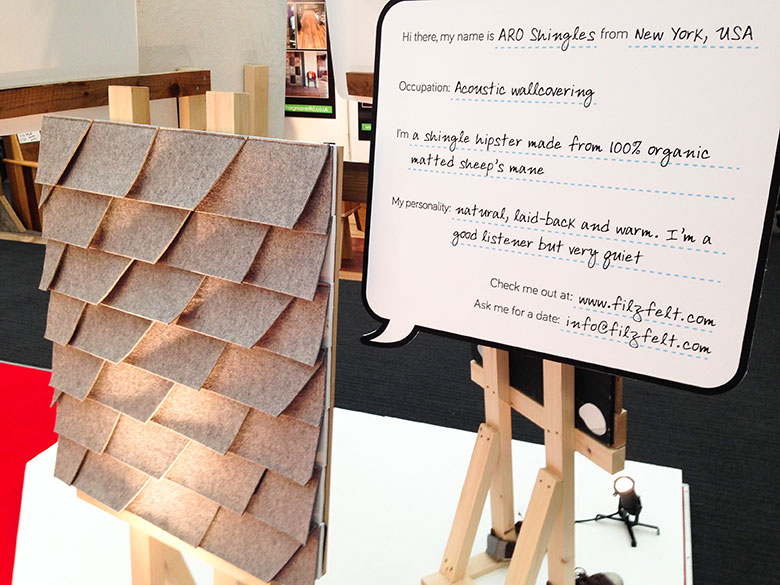 Hi there, my name is ARO Shingles from New York, USA
Occupation: Acoustic wallcovering
I'm a shingle hipster made from 100% organic
matted sheep's mane
My personality: natural, laid-back and warm. I'm a
good listener but very quiet
Check me out at: www.filzfelt.com
Ask me for a date: info@filzfelt.com